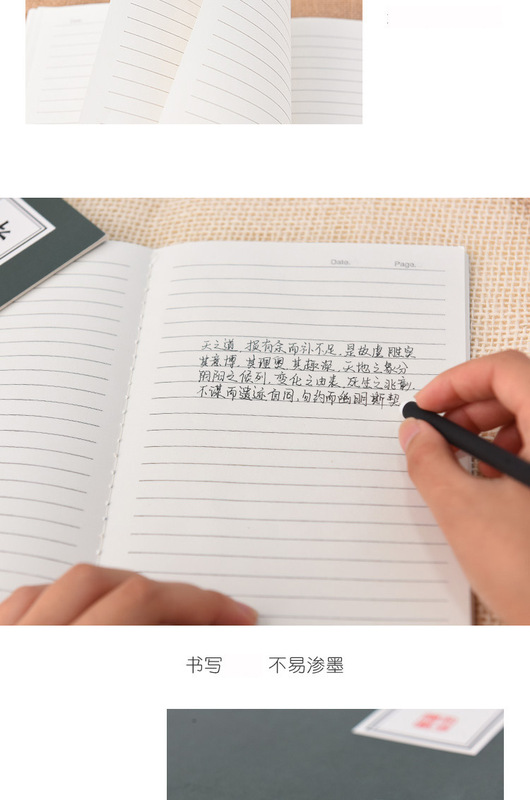 Date. Page.
天之道，损有余而补不足，是故虚胜实
其意博，其理奥，其趣深，天地之象分
阴阳之候列，变化之由表，死生之兆彰，
不谋而遗迹自同，勿约而幽明斯契
书写 不易渗墨